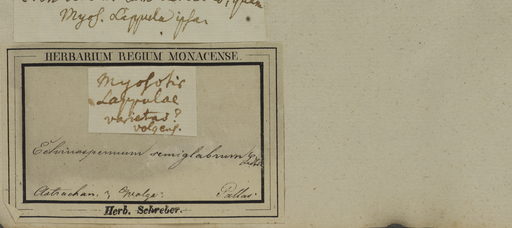 Myos. Lappula ipsa
HERBARIUM REGIUM MONACENSE.
Myosotis
Lappulae
varietas?
volgens.
Echinospermum semiglabrum
Astrachan. Wolga. Pallas.
Herb. Schreber.